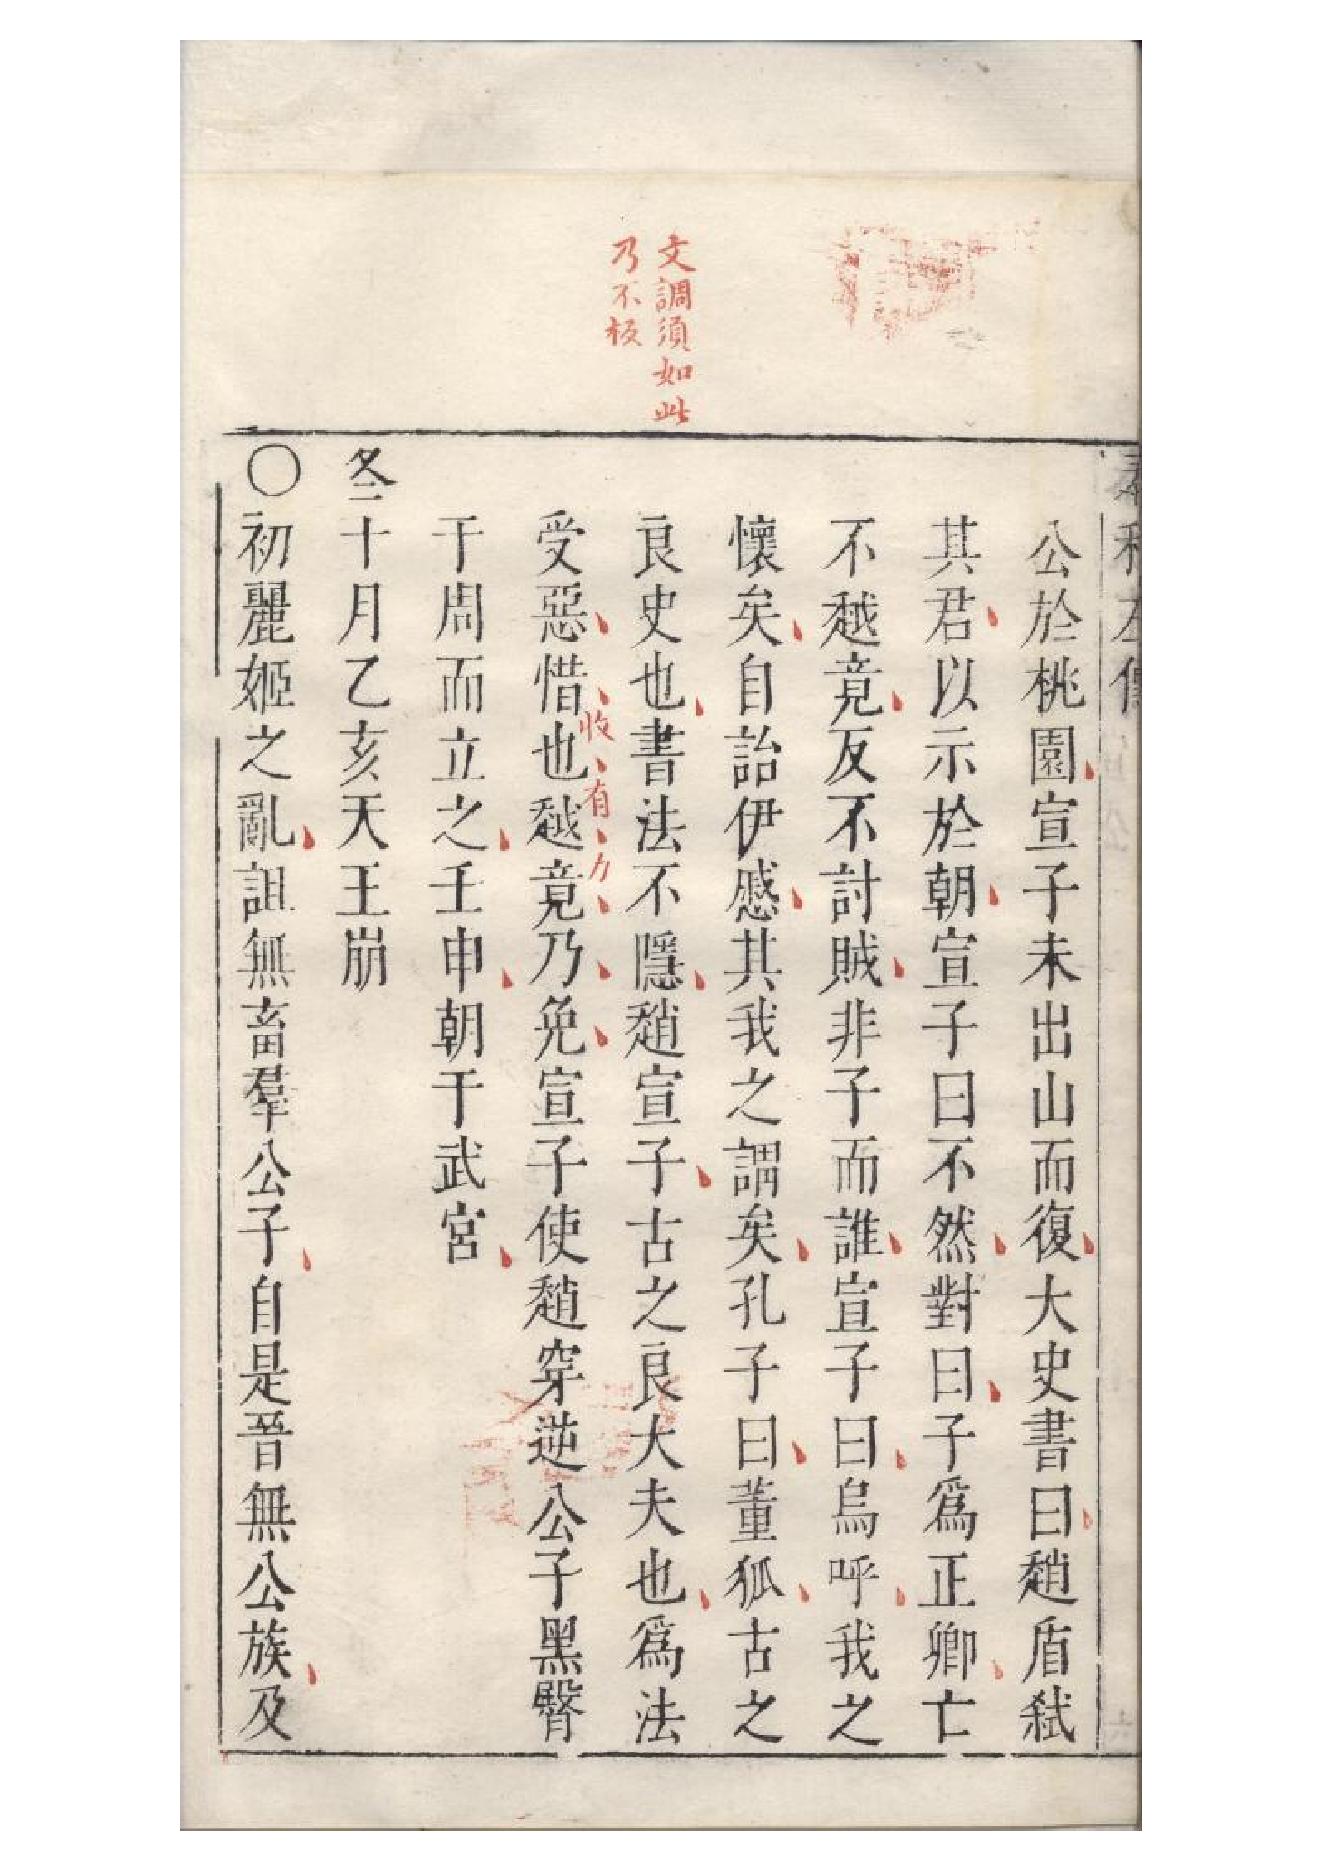 文調須如此
乃不板
公於桃園宣子未出山而復大史書曰趙盾弑
其君以示於朝宣子曰不然對曰子爲正卿亡
不越竟反不討賊非子而誰宣子曰烏呼我之
懷矣自詒伊慼其我之謂矣孔子曰董狐古之
良史也書法不隱趙宣子古之良大夫也爲法
受惡惜也越竟乃免宣子使趙穿逆公子黑臀
收有力
于周而立之壬申朝于武宮
冬十月乙亥天王崩
〇初麗姬之亂詛無畜羣公子自是晉無公族及